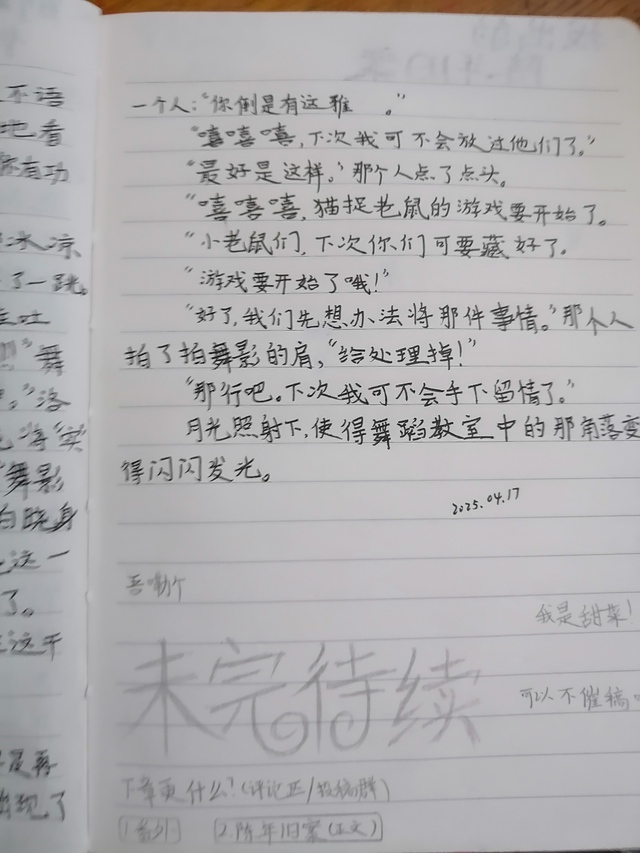 不语
地看
你有功
冰凉
了一跳。
在吐
”舞
。”洛
将“实
“舞影
白晓身
这一
了。
在这千
是再
出现了
一个人：“你倒是有这雅 。”
“嘻嘻嘻，下次我可不会放过他们了。”
“最好是这样。”那个人点了点头。
“嘻嘻嘻，猫捉老鼠的游戏要开始了。
“小老鼠们，下次你们可要藏好了。
“游戏要开始了哦！”
“好了，我们先想办法将那件事情。”那个人
拍了拍舞影的肩，“给处理掉！”
“那行吧。下次我可不会手下留情了。”
月光照射下，使得舞蹈教室中的那角落变
得闪闪发光。
2025.04.17
我是甜菜！
未完待续
可以不催稿
下章更什么？（评论区/投稿群）
1番外 2.陈年旧案（正文）